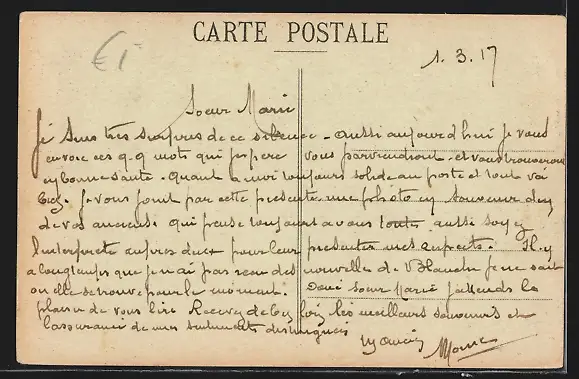 CARTE POSTALE
€ 1
1.3.17
Soeur Marie
Je suis très surpris de ce silence - aussi aujourd'hui je vous
envoie ces q-q mots qui j'espere vous parviendront et vous trouveront
en bonne santé. quant a moi toujours solide au poste et tout va
bien. Je vous joint par cette presente une photo en souvenir d'un
de vos anciens qui pense toujours a vous toutes aussi soyez
l'interprete aupres d'eux pour leur presenter mes respects. Il y
a longtemps que je n'ai pas reçu des nouvelles de Blanche je ne sait
ou elle se trouve pour le moment. Soeur Marie j'attends le
plaisir de vous lire Recevez de les meilleurs souvenirs et
l'assurance de mes sentiments distingués